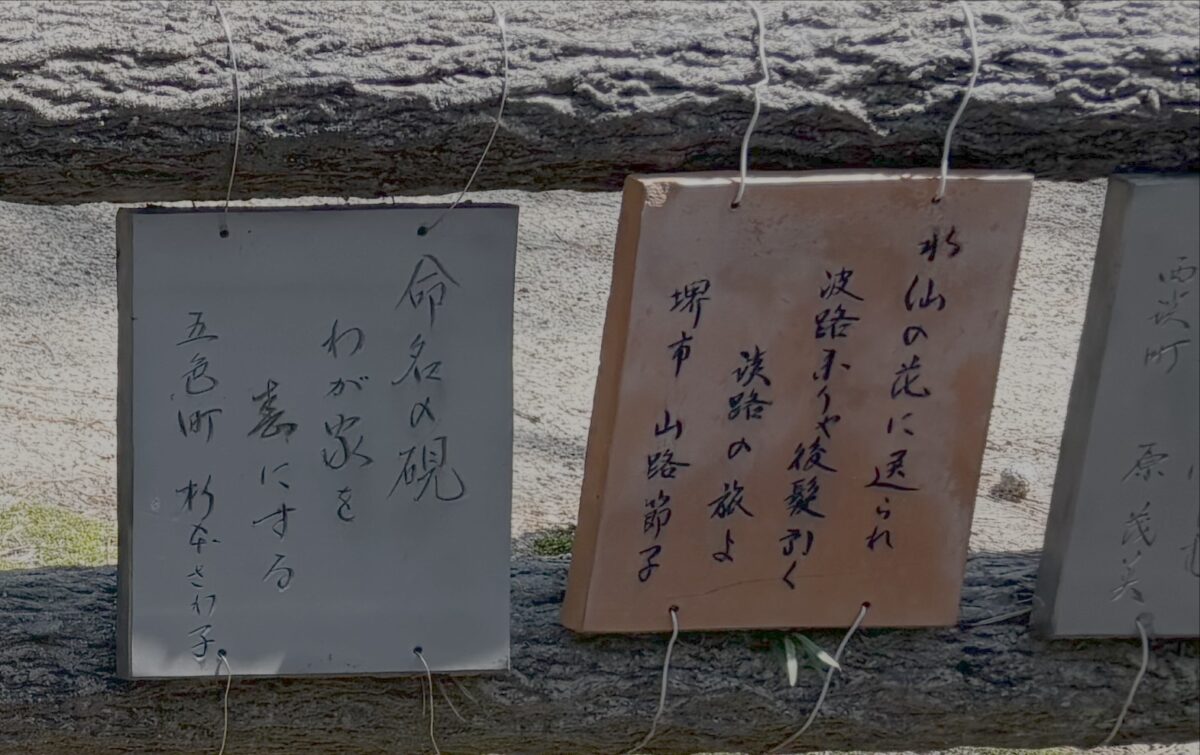 西淡町 原茂美
水仙の花に送られ
波路来りや後髪引く
淡路の旅よ
堺市 山路節子
命名の硯
わが家を
春にする
五色町 杉本さわ子